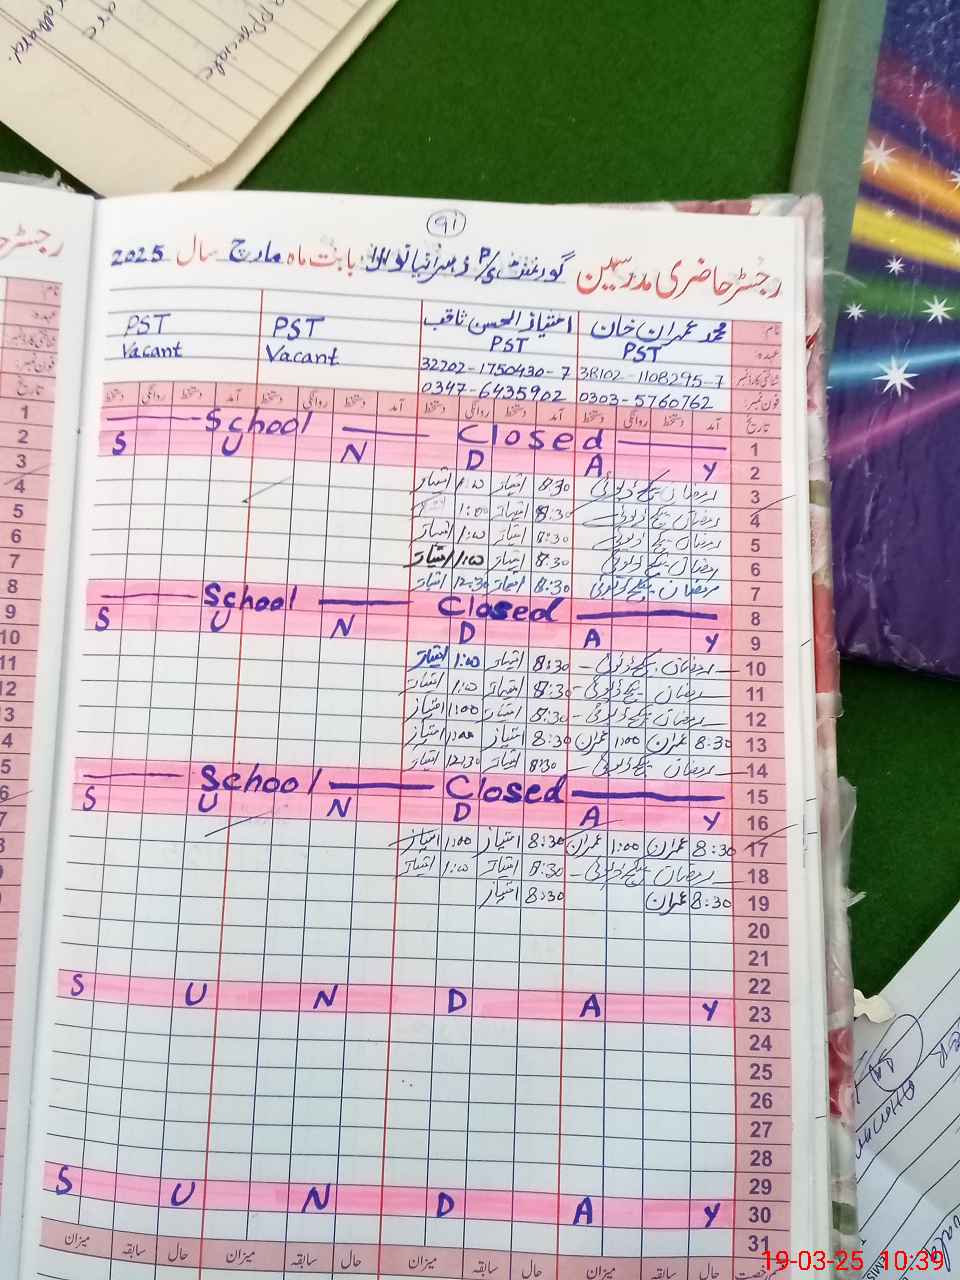 91
رجسٹر حاضری مدرسین گورنمنٹ P/S بابت ماہ مارچ سال 2025
نام محمد عمران خان امتیاز الحسن ثاقب PST PST
عہدہ PST PST Vacant Vacant
شناختی کارڈ نمبر 38102-1108295-7 32202-1750430-7
فون نمبر 0303-5760762 0347-6435902
تاریخ آمد دستخط روانگی دستخط آمد دستخط روانگی دستخط آمد دستخط روانگی دستخط آمد دستخط روانگی دستخط
1 School Closed
2 S U N D A Y
3 رمضان پیکج ڈیوٹی 8:30 امتیاز 1:00 امتیاز
4 رمضان پیکج ڈیوٹی 8:30 امتیاز 1:00
5 رمضان پیکج ڈیوٹی 8:30 امتیاز 1:00 امتیاز
6 رمضان پیکج ڈیوٹی 8:30 امتیاز 1:00 امتیاز
7 رمضان پیکج ڈیوٹی 8:30 امتیاز 12:30 امتیاز
8 School Closed
9 S U N D A Y
10 رمضان پیکج ڈیوٹی 8:30 امتیاز 1:00 امتیاز
11 رمضان پیکج ڈیوٹی 8:30 امتیاز 1:00 امتیاز
12 رمضان پیکج ڈیوٹی 8:30 امتیاز 1:00 امتیاز
13 8:30 عمران 1:00 عمران 8:30 امتیاز 1:00 امتیاز
14 رمضان پیکج ڈیوٹی 8:30 امتیاز 12:30 امتیاز
15 School Closed
16 S U N D A Y
17 8:30 عمران 1:00 عمران 8:30 امتیاز 1:00 امتیاز
18 رمضان پیکج ڈیوٹی 8:30 امتیاز 1:00 امتیاز
19 8:30 عمران 8:30 امتیاز
20
21
22
23 S U N D A Y
24
25
26
27
28
29
30 S U N D A Y
31
حال سابقہ میزان حال سابقہ میزان حال سابقہ میزان حال سابقہ میزان
19-03-25 10:39